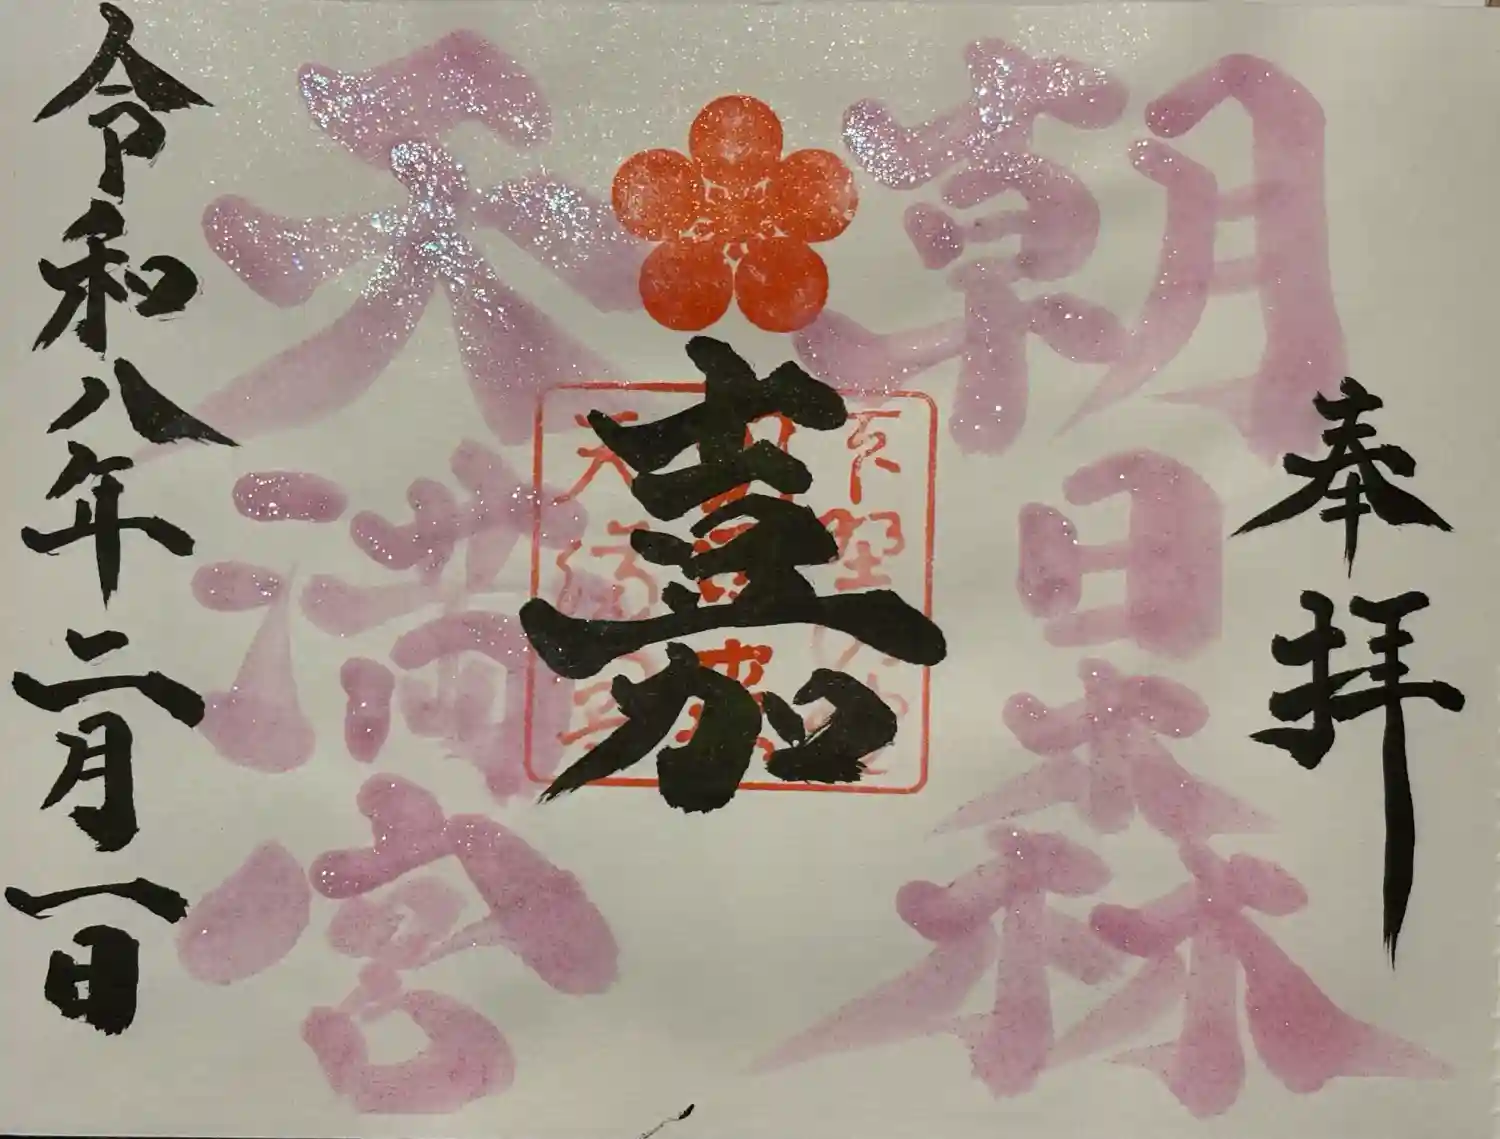 奉拝
朝日森
天満宮
嘉
天満宮
令和八年二月一日